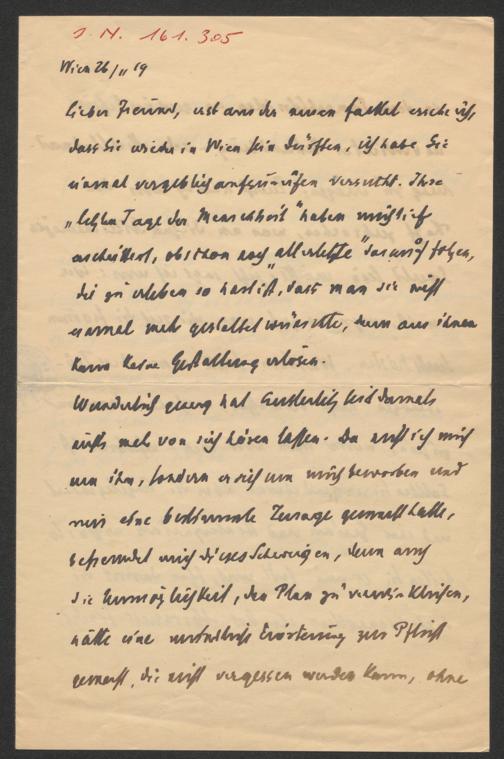 J. N. 161.305
Wien 26/11 19
Lieber Freund, erst aus der neuen Fackel ersehe ich,
dass Sie wieder in Wien sein dürften, ich habe Sie
einmal vergeblich anzurufen versucht. Ihre
„letzten Tage der Menschheit" haben mich tief
erschüttert, obschon noch „allerletzte" darauf folgen,
die zu erleben so hart ist, dass man sie nicht
einmal mehr gestaltet wünschte, denn aus ihnen
kann keine Gestaltung erlösen.
Wunderlich genug hat seit damals
nichts mehr von sich hören lassen. Da nicht ich mich
um ihn, sondern er sich um mich beworben und
mir eine bestimmte Zusage gemacht hatte,
befremdet mich dieses Schweigen, denn auch
die Unmöglichkeit, den Plan zu verwirklichen,
hätte eine mündliche Erörterung zur Pflicht
gemacht, die nicht vergessen werden kann, ohne